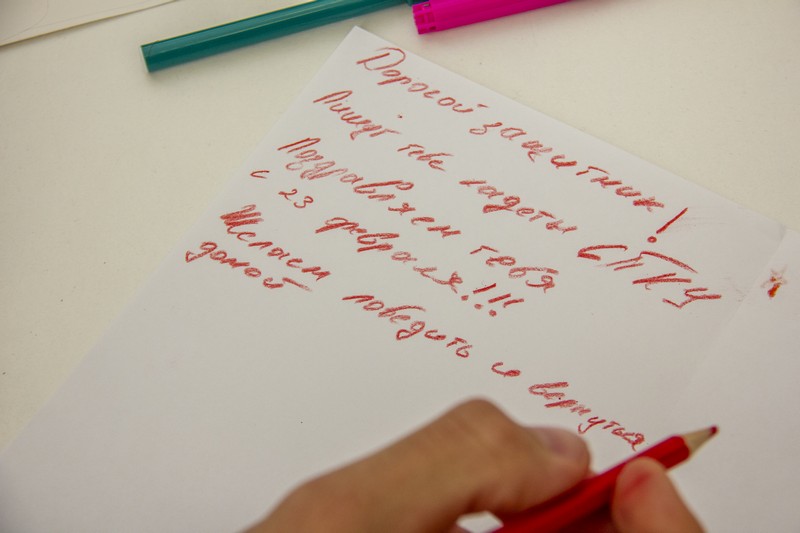 Дорогой защитник!
Пишут тебе кадеты СПКУ
Поздравляем тебя
с 23 февраля!!!
Желаем победить и вернуться
домой